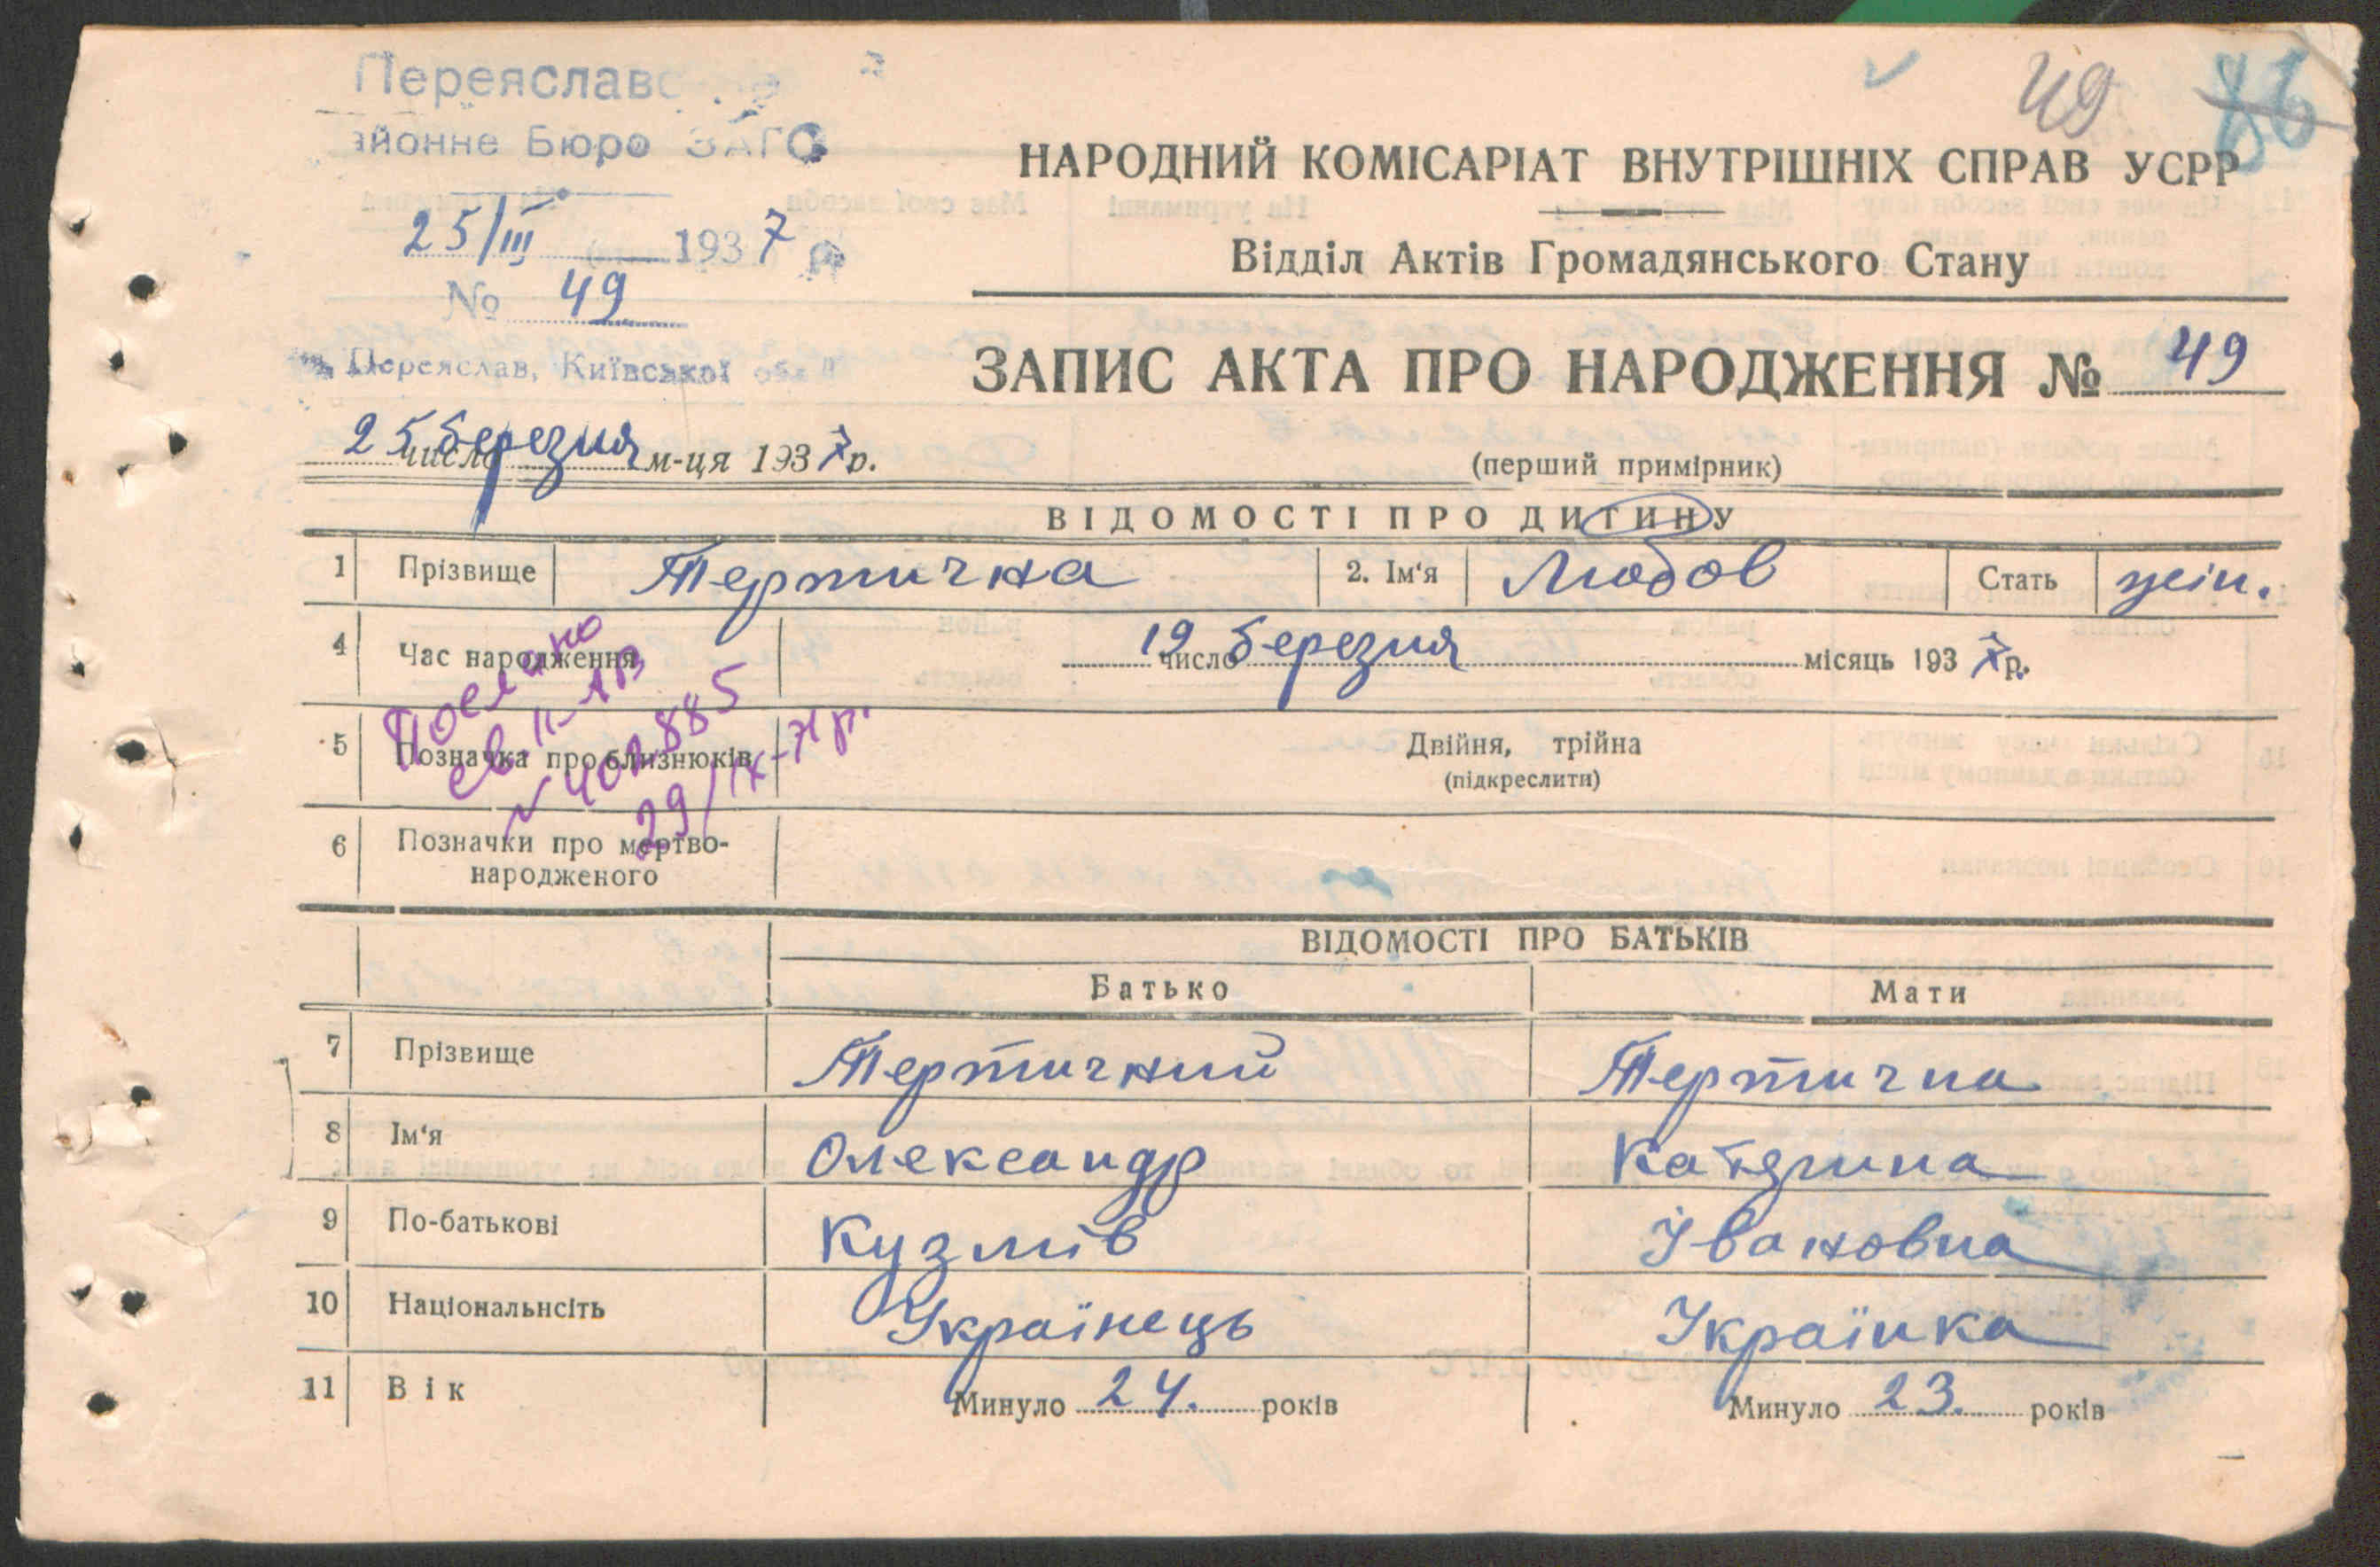 Переяслав
айонне Бюро ЗАГС
49 86
НАРОДНИЙ КОМІСАРІАТ ВНУТРІШНІХ СПРАВ УСРР
25/III 1937 р
№ 49
Відділ Актів Громадянського Стану
м. Переяслав, Київської обл
ЗАПИС АКТА ПРО НАРОДЖЕННЯ № 49
25 число березня м-ця 1937 р.
(перший примірник)
ВІДОМОСТІ ПРО ДИТИНУ
1 Прізвище Тертична 2. Ім'я Любов Стать жін.
4 Час народження 19 число березня місяць 1937 р.
Послано
св. II-АВ
№ 402885
29/IX-71 р.
5 Позначка про близнюків Двійня, трійна
(підкреслити)
6 Позначки про мертво-
народженого
ВІДОМОСТІ ПРО БАТЬКІВ
Батько Мати
7 Прізвище Тертичний Тертична
8 Ім'я Олександр Катярина
9 По-батькові Кузмів Івановна
10 Національнсіть Українець Українка
11 Вік Минуло 24. років Минуло 23. років